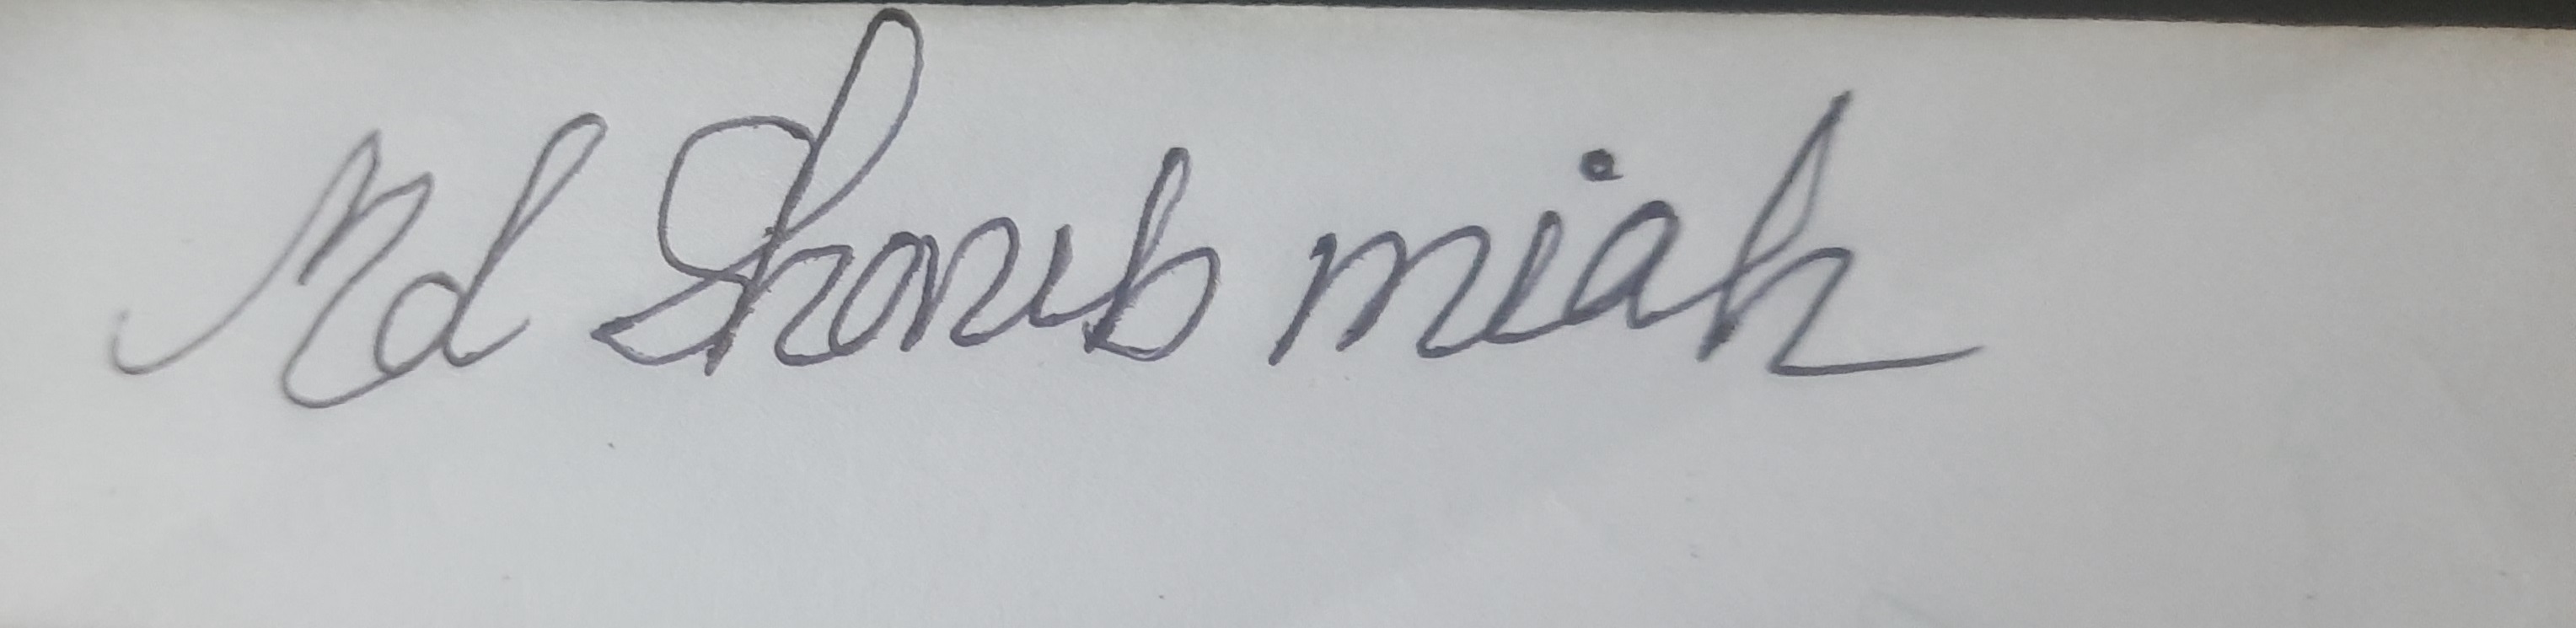 Md Shorub miah